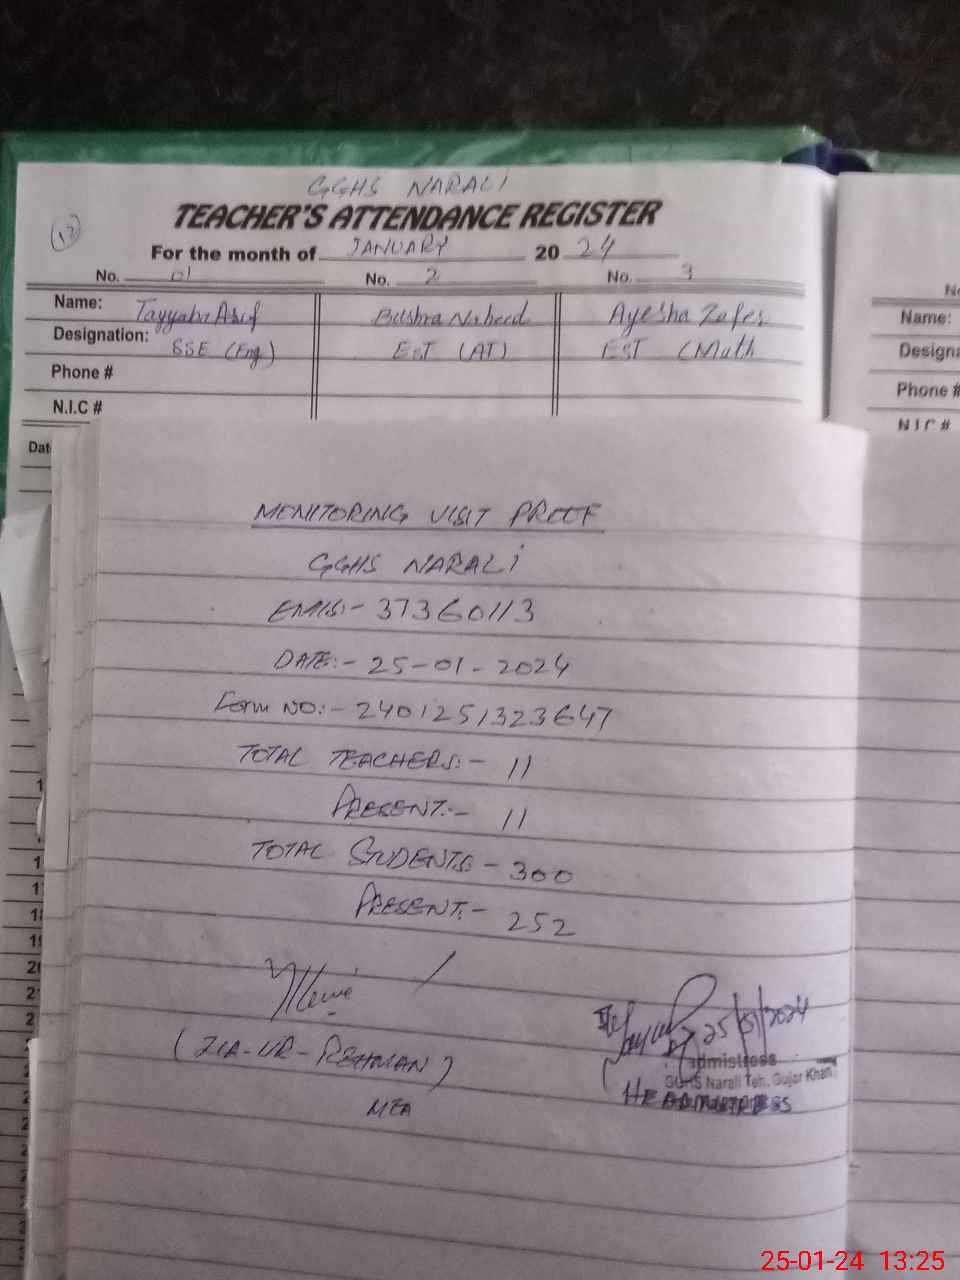 GGHS NARALI
TEACHER'S ATTENDANCE REGISTER
12
For the month of JANUARY 2024
No. 01 No. 2 No. 3
Name: Tayyaba Asif Bushra Naheed Ayesha Zafer
Designation: SSE (Eng) EST (AT) EST (Math
Phone #
N.I.C #
Dat
No
Name:
Designa
Phone #
N.I.C #
MONITORING VISIT PROOF
GGHS NARALI
EMIS:- 37360113
DATE:- 25-01-2024
Form NO:- 2401251323647
TOTAL TEACHERS:- 11
PRESENT:- 11
TOTAL STUDENTS:- 300
PRESENT:- 252
(ZIA-UR-REHMAN)
MEA
25/01/2024
admistress
GGHS Narali Teh. Gujar Khan
HEADMISTRESS
25-01-24 13:25